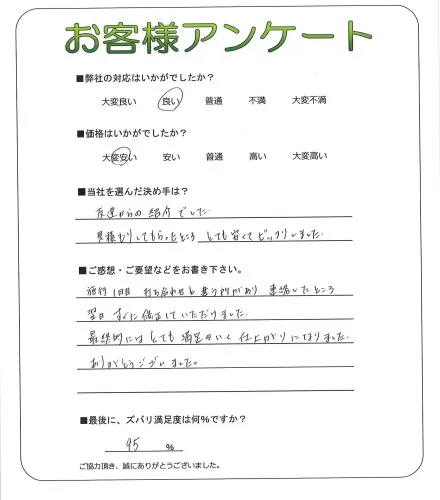 お客様アンケート
■弊社の対応はいかがでしたか？
大変良い 良い 普通 不満 大変不満
■価格はいかがでしたか？
大変安い 安い 普通 高い 大変高い
■当社を選んだ決め手は？
友達からの紹介でした。
見積もりしてもらったところ とても安くてビックリしました。
■ご感想・ご要望などをお書き下さい。
施行1日目 打ち合わせと違う所があり 連絡したところ
翌日 すぐに修正していただけました。
最終的には とても 満足のいく 仕上がりになりました。
ありがとうございました。
■最後に、ズバリ満足度は何%ですか？
95 %
ご協力頂き、誠にありがとうございました。